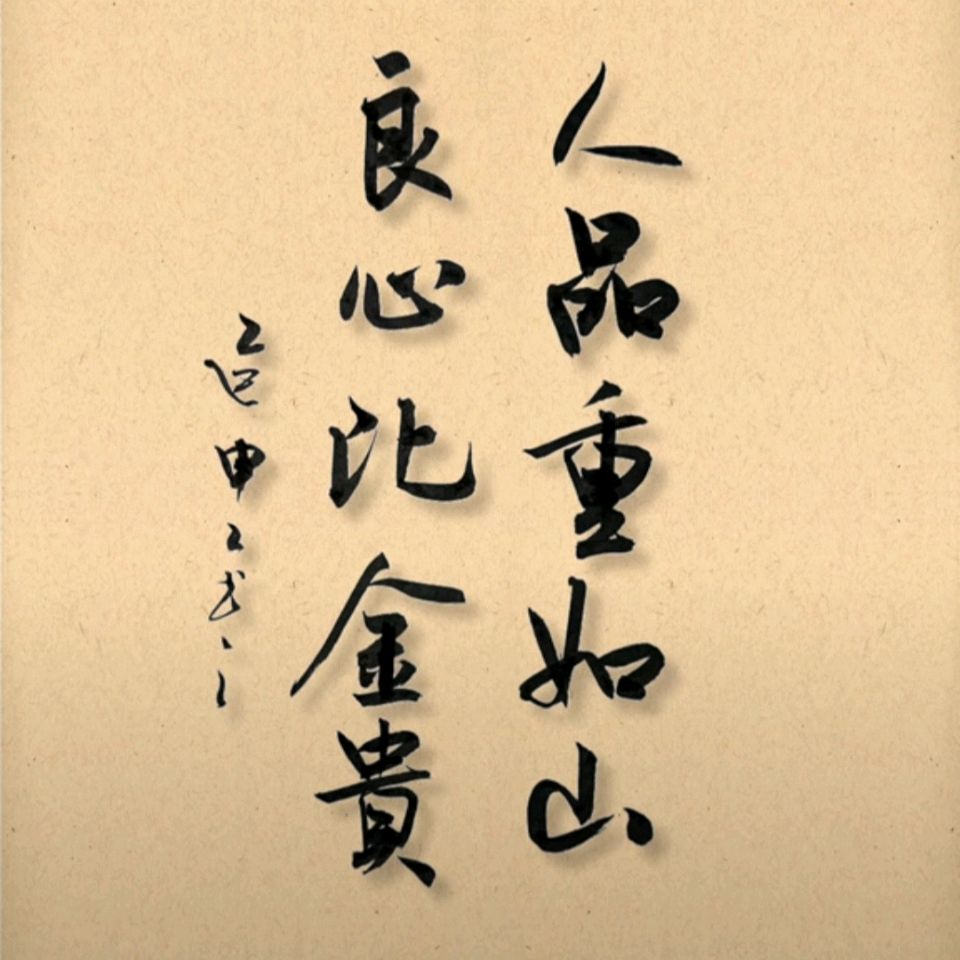 人品重如山
良心比金貴